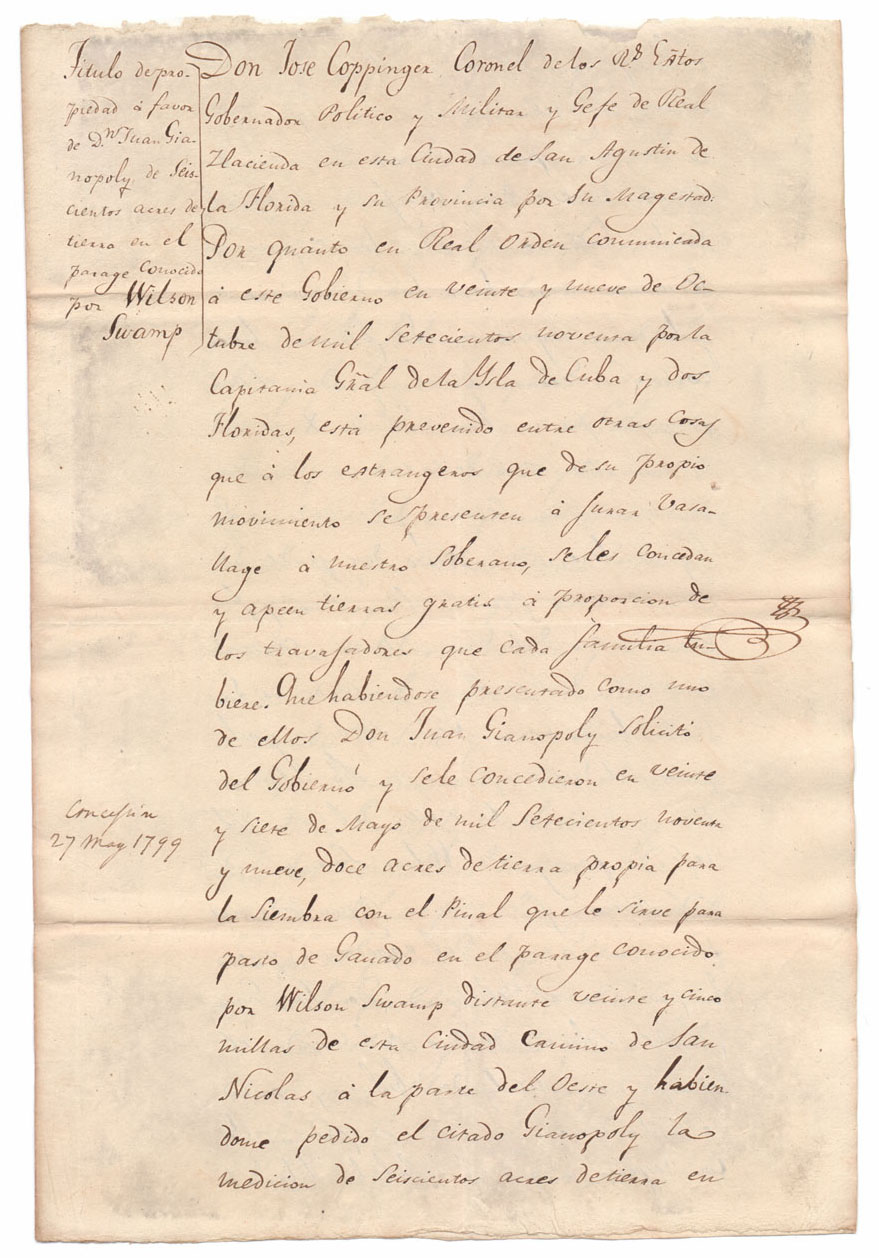 Titulo de pro-
piedad á favor
de Dn. Juan Gia-
nopoly de Seis-
cientos acres de
tierra en el
parage conocido
por Wilson
Swamp
Don Jose Coppinger Coronel de los Rs. Extos
Gobernador Politico y Militar y Gefe de Real
Hacienda en esta Ciudad de San Agustin de
la Florida y su Provincia por Su Magestad.
Por quanto en Real Orden comunicada
á este Gobierno en veinte y nueve de Oc-
tubre de mil setecientos noventa por la
Capitania Gñal de la Ysla de Cuba y dos
Floridas, está prevenido entre otras cosas
que á los estrangeros que de su propio
movimiento se presenten á Jurar Vasa-
llage á nuestro Soberano, se les concedan
y apeen tierras gratis á proporcion de
los travajadores que cada familia tu-
biere. Que habiendose presentado como uno
de ellos Don Juan Gianopoly solicitó
del Gobierno y se le concedieron en veinte
y siete de Mayo de mil Setecientos noventa
y nueve, doce acres de tierra propia para
la Siembra con el Pinal que le sirve para
pasto de Ganado en el parage conocido
por Wilson Swamp distante veinte y cinco
millas de esta Ciudad Camino de San
Nicolas á la parte del Oeste y habien
dome pedido el citado Gianopoly la
medicion de Seiscientos acres de tierra en
Concesion
27 May 1799